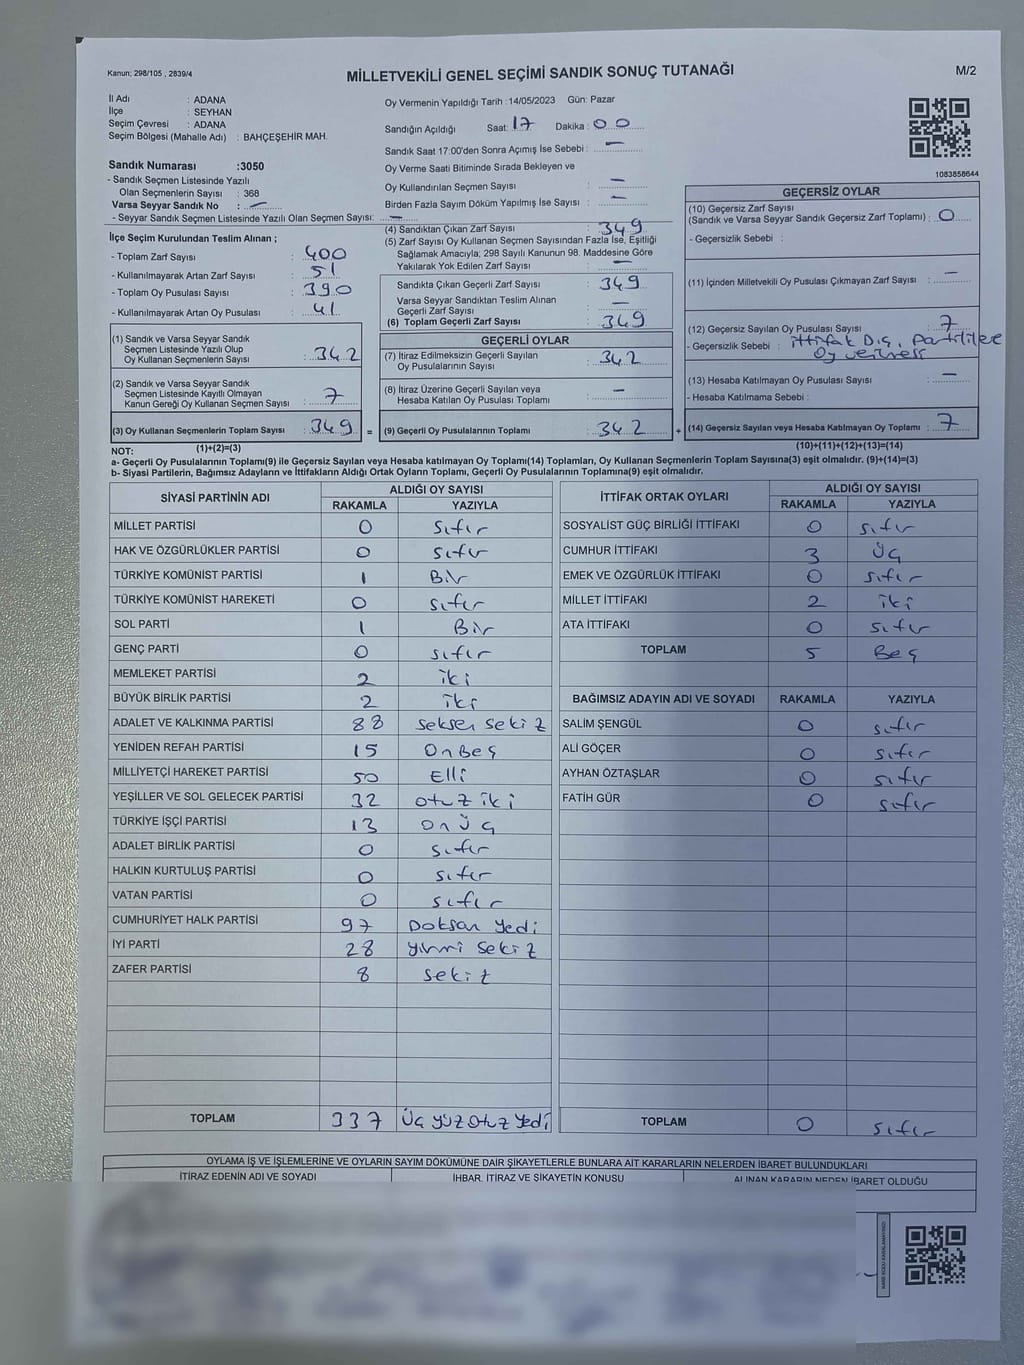 Kanun; 298/105 , 2839/4
MİLLETVEKİLİ GENEL SEÇİMİ SANDIK SONUÇ TUTANAĞI
M/2
İl Adı : ADANA
İlçe : SEYHAN
Seçim Çevresi : ADANA
Seçim Bölgesi (Mahalle Adı) : BAHÇEŞEHİR MAH.
Oy Vermenin Yapıldığı Tarih :14/05/2023 Gün: Pazar
Sandığın Açıldığı Saat: 17 Dakika: 00
Sandık Saat 17:00'den Sonra Açımış İse Sebebi : —
Sandık Numarası :3050
- Sandık Seçmen Listesinde Yazılı
Olan Seçmenlerin Sayısı : 368
Varsa Seyyar Sandık No : —
- Seyyar Sandık Seçmen Listesinde Yazılı Olan Seçmen Sayısı: —
Oy Verme Saati Bitiminde Sırada Bekleyen ve
Oy Kullandırılan Seçmen Sayısı : —
Birden Fazla Sayım Döküm Yapılmış İse Sayısı : —
1083858644
İlçe Seçim Kurulundan Teslim Alınan ;
- Toplam Zarf Sayısı : 400
- Kullanılmayarak Artan Zarf Sayısı : 51
- Toplam Oy Pusulası Sayısı : 390
- Kullanılmayarak Artan Oy Pusulası : 41
(1) Sandık ve Varsa Seyyar Sandık
Seçmen Listesinde Yazılı Olup
Oy Kullanan Seçmenlerin Sayısı : 342
(2) Sandık ve Varsa Seyyar Sandık
Seçmen Listesinde Kayıtlı Olmayan
Kanun Gereği Oy Kullanan Seçmen Sayısı : 7
(3) Oy Kullanan Seçmenlerin Toplam Sayısı : 349 =
(1)+(2)=(3)
(4) Sandıktan Çıkan Zarf Sayısı : 349
(5) Zarf Sayısı Oy Kullanan Seçmen Sayısından Fazla İse, Eşitliği
Sağlamak Amacıyla; 298 Sayılı Kanunun 98. Maddesine Göre
Yakılarak Yok Edilen Zarf Sayısı : —
Sandıkta Çıkan Geçerli Zarf Sayısı : 349
Varsa Seyyar Sandıktan Teslim Alınan
Geçerli Zarf Sayısı : —
(6) Toplam Geçerli Zarf Sayısı : 349
GEÇERLİ OYLAR
(7) İtiraz Edilmeksizin Geçerli Sayılan
Oy Pusulalarının Sayısı : 342
(8) İtiraz Üzerine Geçerli Sayılan veya
Hesaba Katılan Oy Pusulası Toplamı : —
(9) Geçerli Oy Pusulalarının Toplamı : 342 +
GEÇERSİZ OYLAR
(10) Geçersiz Zarf Sayısı
(Sandık ve Varsa Seyyar Sandık Geçersiz Zarf Toplamı) : 0
- Geçersizlik Sebebi :
(11) İçinden Milletvekili Oy Pusulası Çıkmayan Zarf Sayısı : —
(12) Geçersiz Sayılan Oy Pusulası Sayısı : 7
- Geçersizlik Sebebi : ittifak Dış,
Oy
(13) Hesaba Katılmayan Oy Pusulası Sayısı : —
- Hesaba Katılmama Sebebi :
(14) Geçersiz Sayılan veya Hesaba Katılmayan Oy Toplamı : 7
(10)+(11)+(12)+(13)=(14)
NOT:
a- Geçerli Oy Pusulasının Toplamı(9) ile Geçersiz Sayılan veya Hesaba katılmayan Oy Toplamı(14) Toplamları, Oy Kullanan Seçmenlerin Toplam Sayısına(3) eşit olmalıdır. (9)+(14)=(3)
b- Siyasi Partilerin, Bağımsız Adayların ve İttifakların Aldığı Ortak Oyların Toplamı, Geçerli Oy Pusulalarının Toplamına(9) eşit olmalıdır.
SİYASİ PARTİNİN ADI
ALDIĞI OY SAYISI
RAKAMLA YAZIYLA
MİLLET PARTİSİ 0 sıfır
HAK VE ÖZGÜRLÜKLER PARTİSİ 0 sıfır
TÜRKİYE KOMÜNİST PARTİSİ 1 Bir
TÜRKİYE KOMÜNİST HAREKETİ 0 sıfır
SOL PARTİ 1 Bir
GENÇ PARTİ 0 sıfır
MEMLEKET PARTİSİ 2 iki
BÜYÜK BİRLİK PARTİSİ 2 iki
ADALET VE KALKINMA PARTİSİ 88 seksen sekiz
YENİDEN REFAH PARTİSİ 15 OnBeş
MİLLİYETÇİ HAREKET PARTİSİ 50 Elli
YEŞİLLER VE SOL GELECEK PARTİSİ 32 otuz iki
TÜRKİYE İŞÇİ PARTİSİ 13 on üç
ADALET BİRLİK PARTİSİ 0 sıfır
HALKIN KURTULUŞ PARTİSİ 0 sıfır
VATAN PARTİSİ 0 sıfır
CUMHURİYET HALK PARTİSİ 97 Doksan yedi
İYİ PARTİ 28 yirmi sekiz
ZAFER PARTİSİ 8 sekiz
TOPLAM 337 üç yüz otuz yedi
İTTİFAK ORTAK OYLARI
ALDIĞI OY SAYISI
RAKAMLA YAZIYLA
SOSYALİST GÜÇ BİRLİĞİ İTTİFAKI 0 sıfır
CUMHUR İTTİFAKI 3 üç
EMEK VE ÖZGÜRLÜK İTTİFAKI 0 sıfır
MİLLET İTTİFAKI 2 iki
ATA İTTİFAKI 0 sıfır
TOPLAM 5 Beş
BAĞIMSIZ ADAYIN ADI VE SOYADI RAKAMLA YAZIYLA
SALİM ŞENGÜL 0 sıfır
ALİ GÖÇER 0 sıfır
AYHAN ÖZTAŞLAR 0 sıfır
FATİH GÜR 0 sıfır
TOPLAM 0 sıfır
OYLAMA İŞ VE İŞLEMLERİNE VE OYLARIN SAYIM DÖKÜMÜNE DAİR ŞİKAYETLERLE BUNLARA AİT KARARLARIN NELERDEN İBARET BULUNDUKLARI
İTİRAZ EDENİN ADI VE SOYADI
İHBAR, İTİRAZ VE ŞİKAYETİN KONUSU
ALINAN KARARIN NEDEN İBARET OLDUĞU